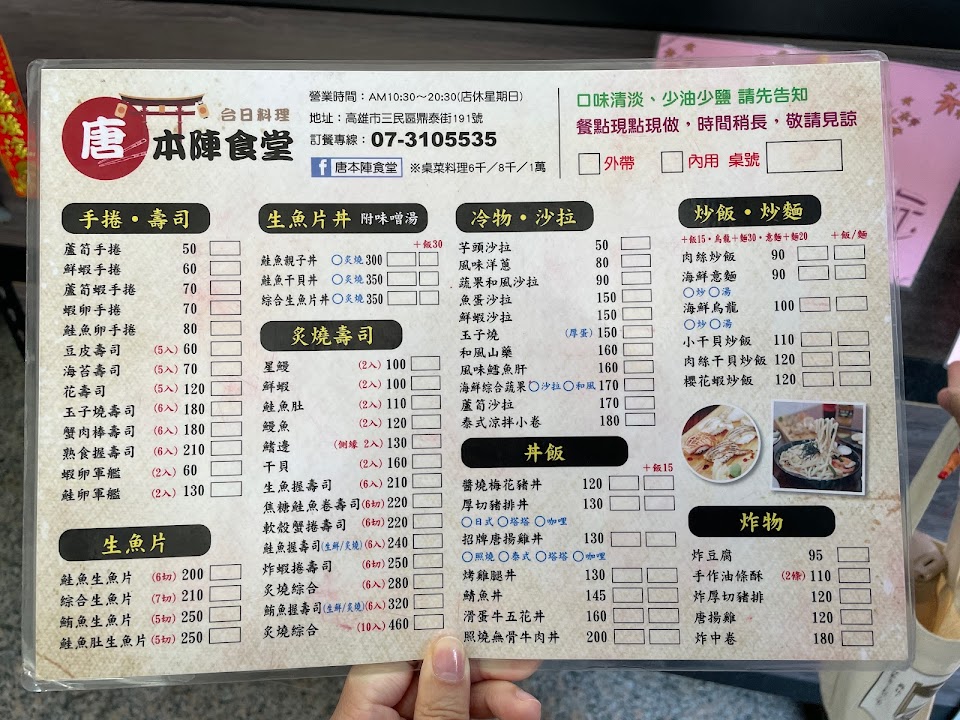 唐
本陣食堂
台日料理
營業時間：AM10:30～20:30(店休星期日)
地址：高雄市三民區鼎泰街191號
訂餐專線：07-3105535
f 唐本陣食堂 ※桌菜料理6千／8千／1萬
口味清淡、少油少鹽 請先告知
餐點現點現做，時間稍長，敬請見諒
外帶 內用 桌號
手捲・壽司
蘆筍手捲 50
鮮蝦手捲 60
蘆筍蝦手捲 70
蝦卵手捲 70
鮭魚卵手捲 80
豆皮壽司 (5入) 60
海苔壽司 (5入) 70
花壽司 (5入) 120
玉子燒壽司 (6入) 180
蟹肉棒壽司 (6入) 180
熟食握壽司 (6入) 210
蝦卵軍艦 (2入) 60
鮭卵軍艦 (2入) 130
生魚片
鮭魚生魚片 (6切) 200
綜合生魚片 (7切) 210
鮪魚生魚片 (5切) 250
鮭魚肚生魚片 (5切) 250
生魚片丼 附味噌湯
＋飯30
鮭魚親子丼 ○炙燒 300
鮭魚干貝丼 ○炙燒 350
綜合生魚片丼 ○炙燒 350
炙燒壽司
星鰻 (2入) 100
鮮蝦 (2入) 100
鮭魚肚 (2入) 110
鰻魚 (2入) 120
鰭邊 (側緣 2入) 130
干貝 (2入) 160
生魚握壽司 (6入) 210
焦糖鮭魚卷壽司 (6切) 220
軟殼蟹捲壽司 (6切) 220
鮭魚握壽司 (生鮮/炙燒) (6入) 240
炸蝦捲壽司 (6切) 250
炙燒綜合 (6入) 280
鮪魚握壽司 (生鮮/炙燒) (6入) 320
炙燒綜合 (10入) 460
冷物・沙拉
芋頭沙拉 50
風味洋蔥 80
蔬果和風沙拉 90
魚蛋沙拉 150
鮮蝦沙拉 150
玉子燒 (厚蛋) 150
和風山藥 160
風味鱈魚肝 160
海鮮綜合蔬果 ○沙拉 ○和風 170
蘆筍沙拉 170
泰式涼拌小卷 180
丼飯
＋飯15
醬燒梅花豬丼 120
厚切豬排丼 130
○日式 ○塔塔 ○咖哩
招牌唐揚雞丼 130
○照燒 ○泰式 ○塔塔 ○咖哩
烤雞腿丼 130
鯖魚丼 145
滑蛋牛五花丼 160
照燒無骨牛肉丼 200
炒飯・炒麵
＋飯15・烏龍＋麵30・意麵＋麵20 ＋飯/麵
肉絲炒飯 90
海鮮意麵 90
○炒 ○湯
海鮮烏龍 100
○炒 ○湯
小干貝炒飯 110
肉絲干貝炒飯 120
櫻花蝦炒飯 120
炸物
炸豆腐 95
手作油條酥 (2條) 110
炸厚切豬排 120
唐揚雞 120
炸中卷 180